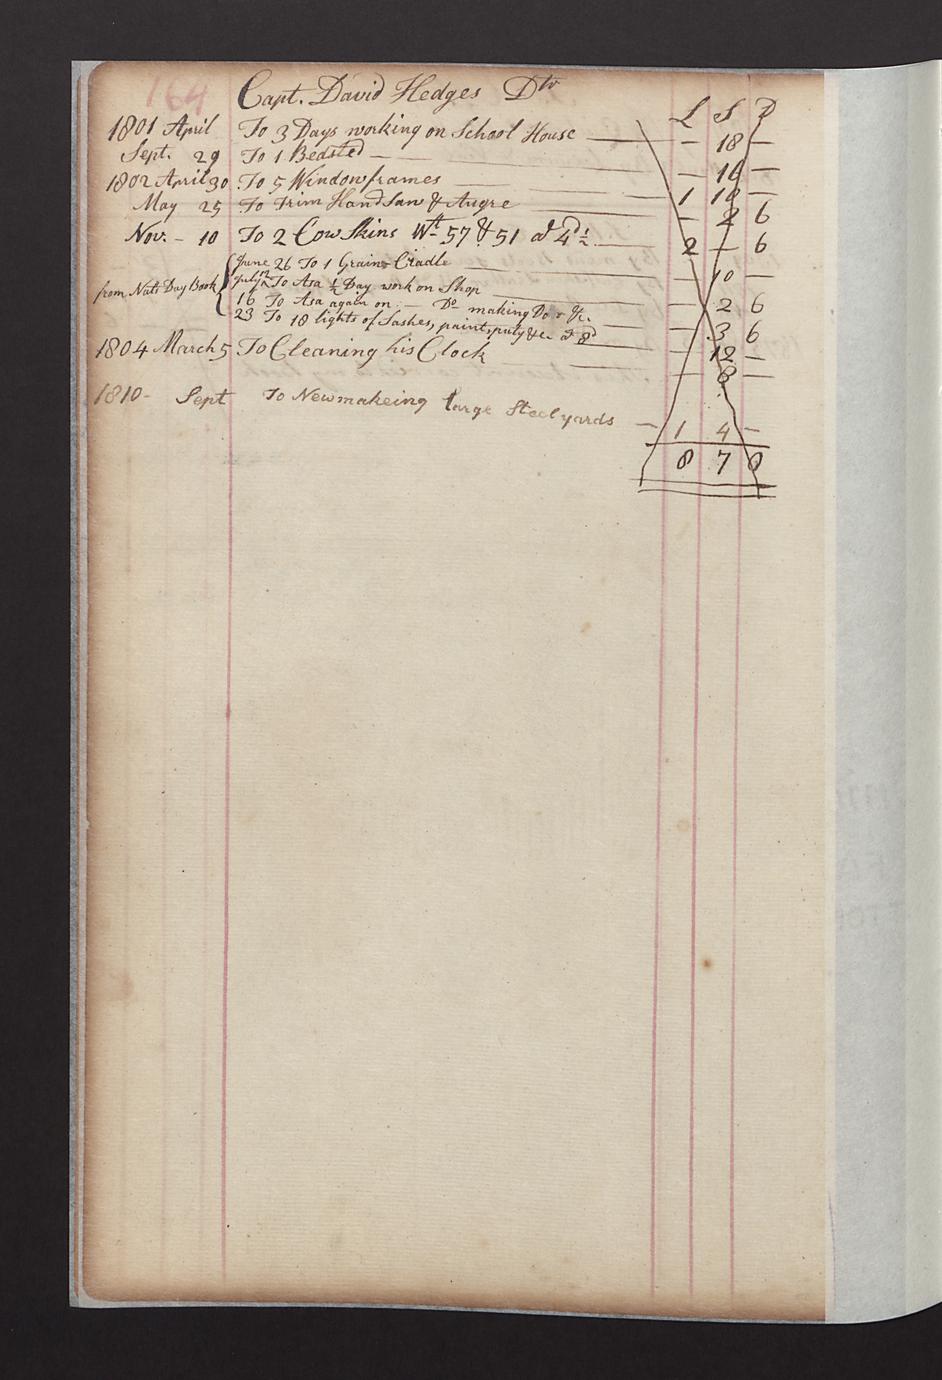 164
Capt. David Hedges Dtr
L S D
1801 April To 3 Days working on School House — — 18 —
Sept. 29 To 1 Bedsted — — 16 —
1802 April 30 To 5 Window frames — 1 10 —
May 25 To Trim Hand Saw & Augre — — 2 6
Nov. - 10 To 2 Cow Skins Wt 57 & 51 at 4d ½ — 2 — 6
from Nats Day Book { June 26 To 1 Grain Cradle — — 10 —
July 12 To Asa ½ Day work on Shop — — 2 6
16 To Asa again on — Do making Do r &c. — — 3 6
23 To 18 lights of Sashes, paint, puty &c at 8d — — 12 —
1804 March 5 To Cleaning his Clock — — 8 —
1810 - Sept To Newmakeing large Steelyards — 1 4 —
8 7 0